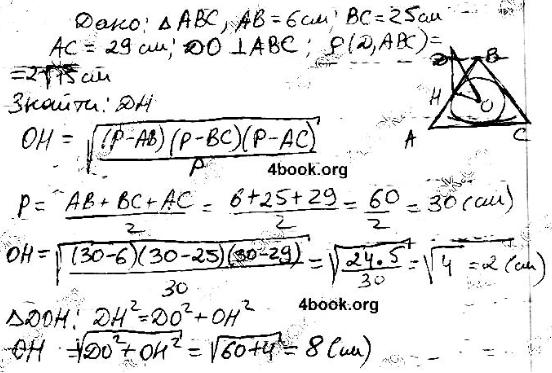 Дано: △ABC, AB = 6 см; BC = 25 см
AC = 29 см; DO ⊥ ABC; ρ(D, ABC) =
= 2√15 см
Знайти: DH
OH = √((P-AB)(P-BC)(P-AC)/P)
4book.org
P = (AB+BC+AC)/2 = (6+25+29)/2 = 60/2 = 30 (см)
OH = √((30-6)(30-25)(30-29)/30) = √(24.5/30) = √4 = 2 (см)
4book.org
△DOH: DH² = DO² + OH²
OH = √(DO² + OH²) = √(60+4) = 8 (см)
D B
H O
A C